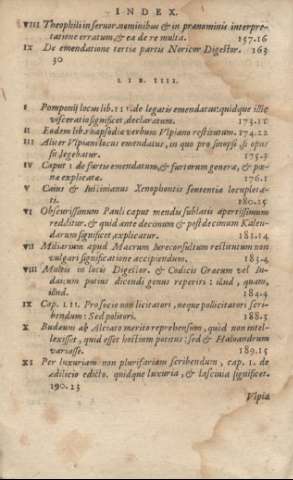 INDEX.
VIII Theophili in servor. nominibus & in pronominis interpre-
tatione erratum, & ea de re multa. 157.16
IX De emendatione tertiæ partis Noricor. Digestor. 163
30
LIB. IIII.
I Pomponij locus lib. III. de legatis emendatur: quidque ille
significet, declaratum. 173.11
II Eodem lib. rhapsodia verbum Vlpiano restitutum. 174.22
III Alter Vlpiani locus emendatus, in quo pro si opus
sit legebatur. 175.3
IV Caput 1. de furtis emendatum, & furtorum genera, & pœ-
næ explicatæ. 176.1
V Caius & Iustinianus Xenophontis sententia locupleta-
ti. 180.15
VI Obscurissimum Pauli caput mendis sublatis apertissimum
redditur. & quid ante decimum & post decimum Kalen-
darum significet, explicatur. 181.14
VII Miliarium apud Macrum Iureconsultum restitutum non
vulgari significatione accipiendum. 183.4
VIII Multis in locis Digestor. & Codicis Græcum vel Iu-
dæum potius dicendi genus reperiri: illud, quam,
illud. 184.4
IX Cap. III. Pro Socio non licitatori, neque pollicitatori scri-
bendum: Sed politori. 188.5
X Budæum ab Alciato merito reprehensum, quid non intel-
lexisset, quid esset hostium potitus: sed & Haloandrum
variasse. 189.15
XI Per luxuriam non plurifariam scribendum, cap. 1. de
ædilicio edicto. quidque luxuria, & lascivia significet.
190.23
Vlpia